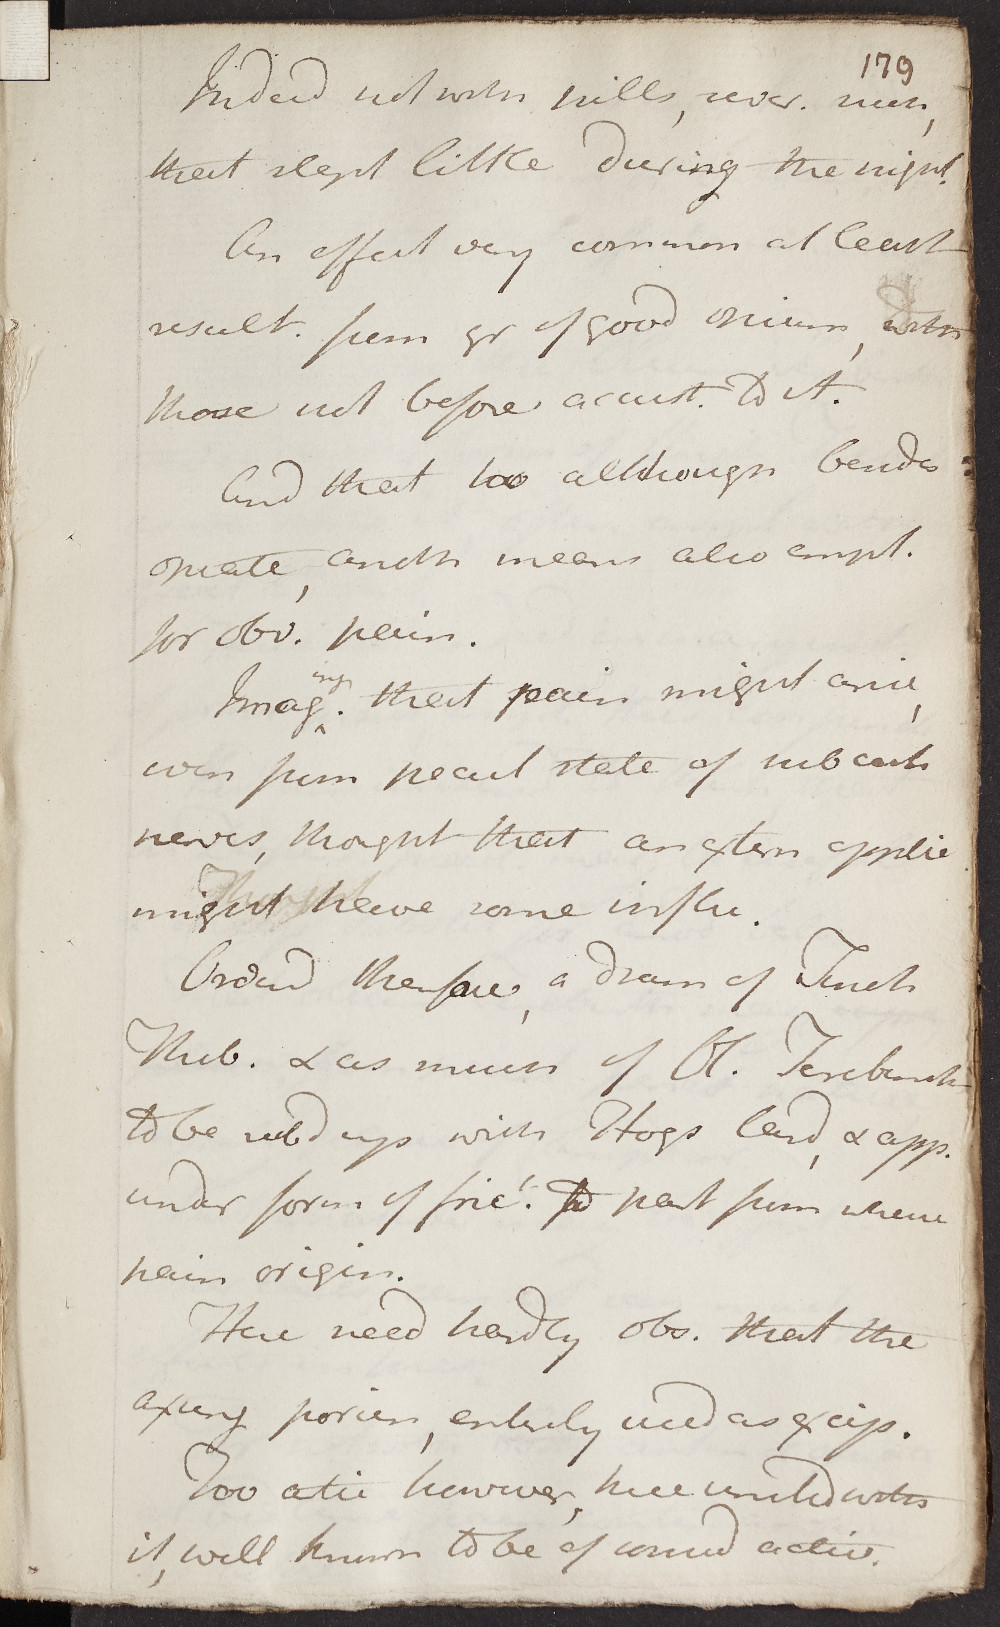 179
Indeed notwith pills, sever. men,
that slept little during the night.
An effect very common at least
result. from gr of good opium, with
those not before accust. to it.
And that too although besides
opiate, anoth means also empl.
for obv. pain.
Imag^ing. that pain might arise,
even from pecul state of subcut
nerves, thought that an extern applic
might have some influ.
Ordered therefore, a dram of Tinct
Theb. & as much of Ol. Terebinth
to be rubd up with Hogs lard, & app.
under form of frict. to part from whence
pain origin.
Here need hardly obs. that the
axung porcin, entirely used as excip.
Two artic however, here united with
it, well known to be of consid activ.